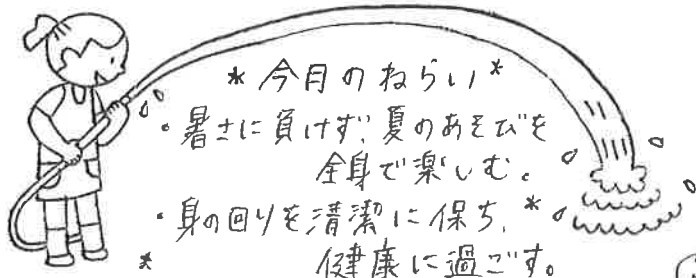 * 今月のねらい *
・暑さに負けず、夏のあそびを
全身で楽しむ。
・身の回りを清潔に保ち、
健康に過ごす。